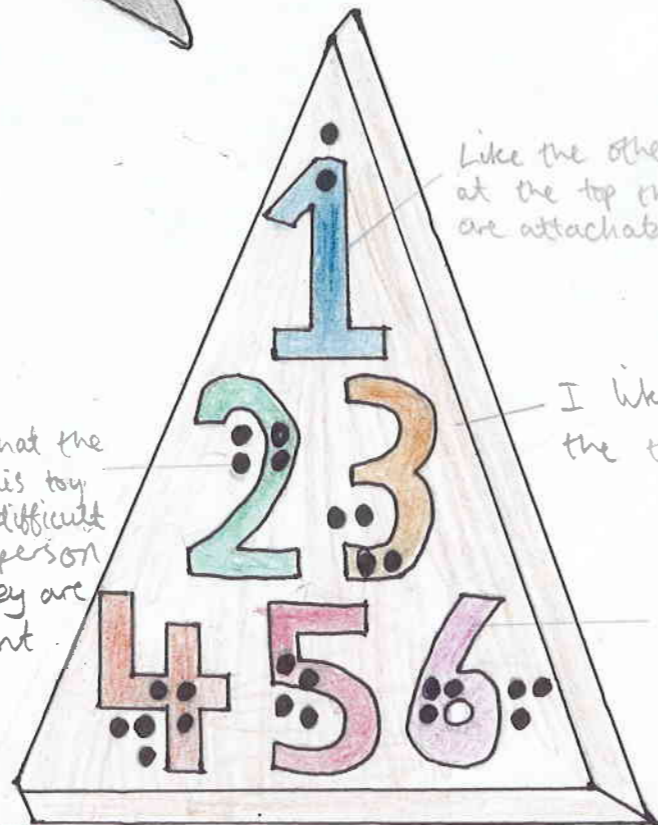 Like the othe
at the top th
are attachab
1
I like
the t
2 3
hat the
is toy
difficult
person
ey are
nt.
4 5 6